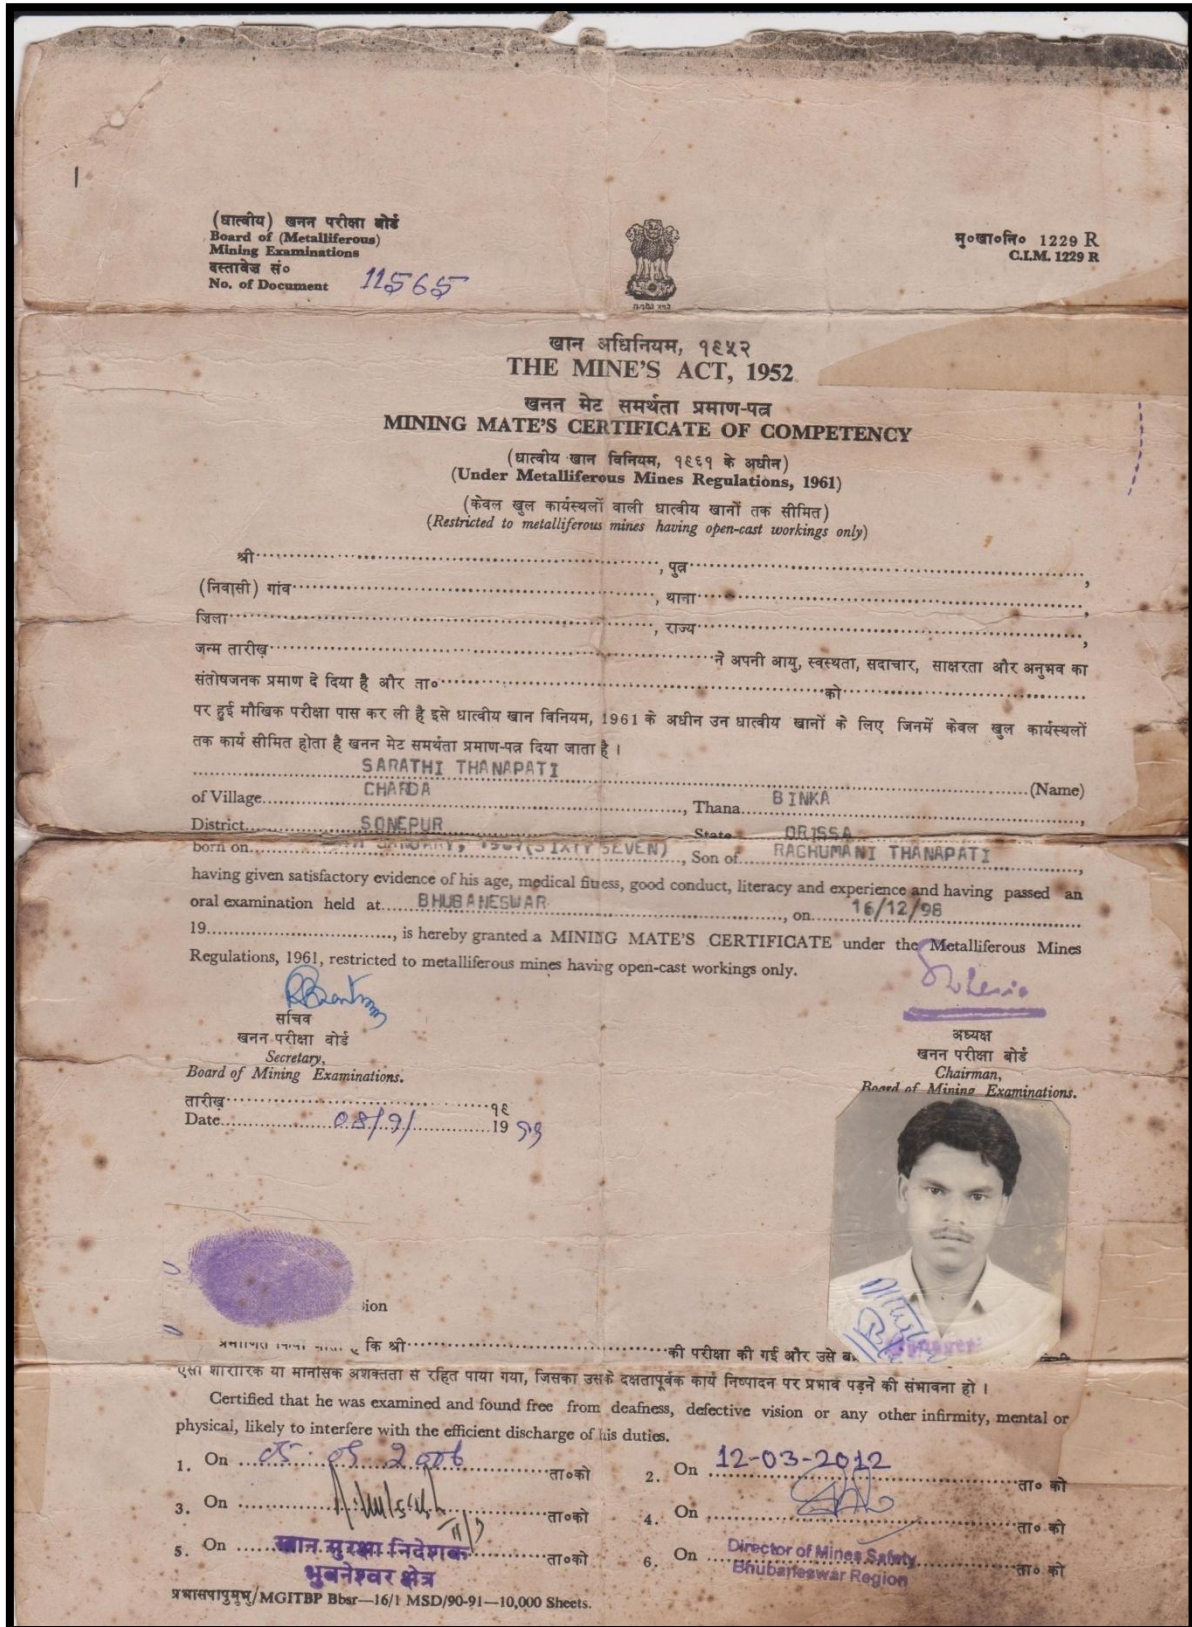 (धात्वीय) खनन परीक्षा बोर्ड
Board of (Metalliferous)
Mining Examinations
दस्तावेज सं०
No. of Document 11565
मु०खा०नि० 1229 R
C.I.M. 1229 R
खान अधिनियम, १९५२
THE MINE'S ACT, 1952
खनन मेट समर्थता प्रमाण-पत्र
MINING MATE'S CERTIFICATE OF COMPETENCY
(धात्वीय खान विनियम, १९६१ के अधीन)
(Under Metalliferous Mines Regulations, 1961)
(केवल खुल कार्यस्थलों वाली धात्वीय खानों तक सीमित)
(Restricted to metalliferous mines having open-cast workings only)
श्री..., पुत्र...,
(निवासी) गांव..., थाना...,
जिला..., राज्य...,
जन्म तारीख...ने अपनी आयु, स्वस्थता, सदाचार, साक्षरता और अनुभव का
संतोषजनक प्रमाण दे दिया है और ता०...को...
पर हुई मौखिक परीक्षा पास कर ली है इसे धात्वीय खान विनियम, 1961 के अधीन उन धात्वीय खानों के लिए जिनमें केवल खुल कार्यस्थलों
तक कार्य सीमित होता है खनन मेट समर्थता प्रमाण-पत्र दिया जाता है ।
SARATHI THANAPATI (Name)
of Village CHARDA, Thana BINKA,
District SONEPUR State ORISSA
born on JANUARY, 1967(SIXTY SEVEN), Son of RAGHUMANI THANAPATI,
having given satisfactory evidence of his age, medical fitness, good conduct, literacy and experience and having passed an
oral examination held at BHUBANESWAR, on 16/12/98
19..., is hereby granted a MINING MATE'S CERTIFICATE under the Metalliferous Mines
Regulations, 1961, restricted to metalliferous mines having open-cast workings only.
सचिव
खनन परीक्षा बोर्ड
Secretary,
Board of Mining Examinations.
अध्यक्ष
खनन परीक्षा बोर्ड
Chairman,
Board of Mining Examinations.
तारीख...१९
Date 08/9/ 19
कि श्री...की परीक्षा की गई और उसे
ऐसी शारीरिक या मानसिक अशक्तता से रहित पाया गया, जिसका उसके दक्षतापूर्वक कार्य निष्पादन पर प्रभाव पड़ने की संभावना हो ।
Certified that he was examined and found free from deafness, defective vision or any other infirmity, mental or
physical, likely to interfere with the efficient discharge of his duties.
1. On 2006 ता०को
2. On 12-03-2012 ता० को
3. On ता०को
4. On ता० को
5. On ता०को
6. On ता० को
खान सुरक्षा निदेशक
भुवनेश्वर क्षेत्र
Director of Mines Safety
Bhubaneswar Region
MGITBP Bbsr—16/1 MSD/90-91—10,000 Sheets.